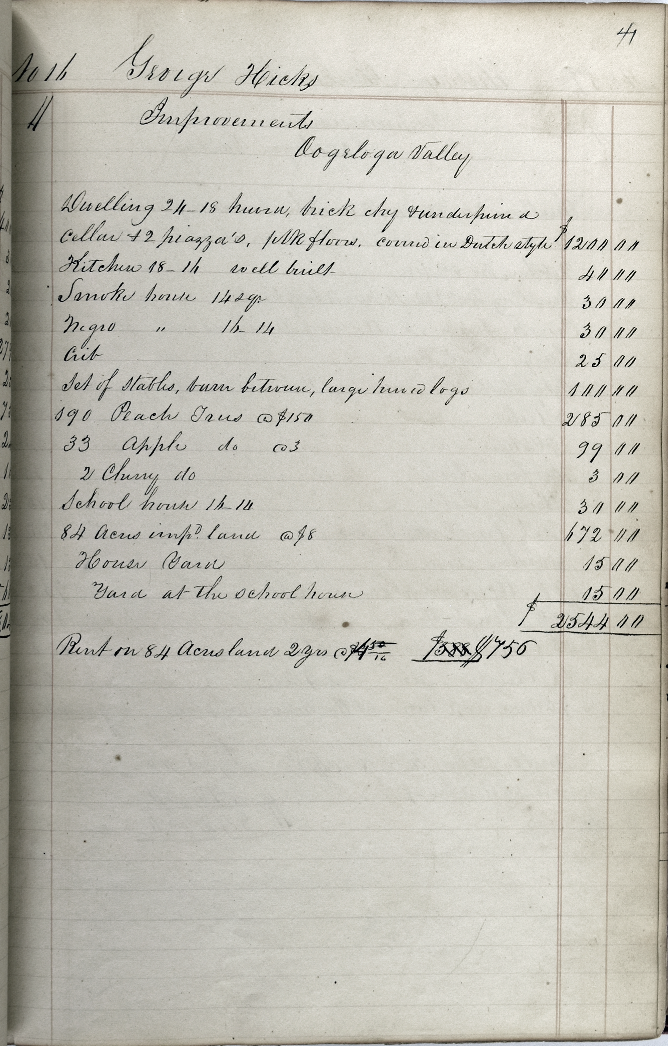 41
No 16 George Hicks
4 Improvements
Oogeloga Valley
Dwelling 24-18 hewn, brick chy & underpined
cellar & 2 piazza's, plk floors. coverd in Dutch style $ 1200 00
Kitchen 18-16 well built 40 00
Smoke house 14 sqr 30 00
Negro " 16-14 30 00
Crib 25 00
Set of stables, barn between, large hewed logs 100 00
190 Peach Trees @ $150 285 00
33 Apple do @3 99 00
2 Cherry do 3 00
School house 16-14 30 00
84 Acres impd land @ $8 672 00
House Yard 15 00
Yard at the school house 15 00
$ 2544 00
Rent on 84 Acres land 2 yrs @ $4 50 $588 $756